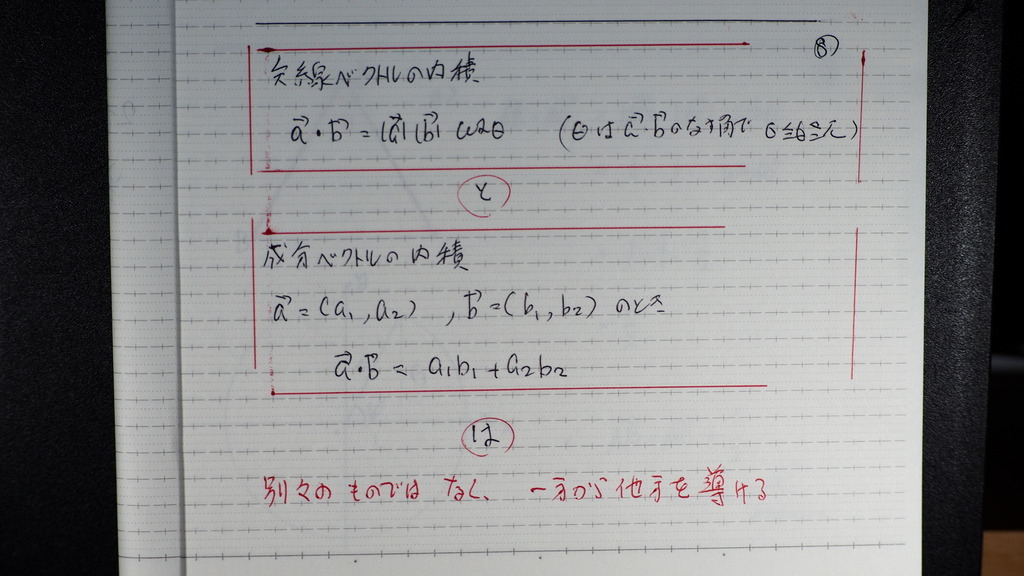 ⑧
矢線ベクトルの内積
a⃗・b⃗ = |a⃗||b⃗| cosθ (θはa⃗・b⃗のなす角で 0≦θ≦π)
と
成分ベクトルの内積
a⃗ = (a₁, a₂) , b⃗ = (b₁, b₂) のとき
a⃗・b⃗ = a₁b₁ + a₂b₂
は
別々のものではなく、一方から他方を導ける